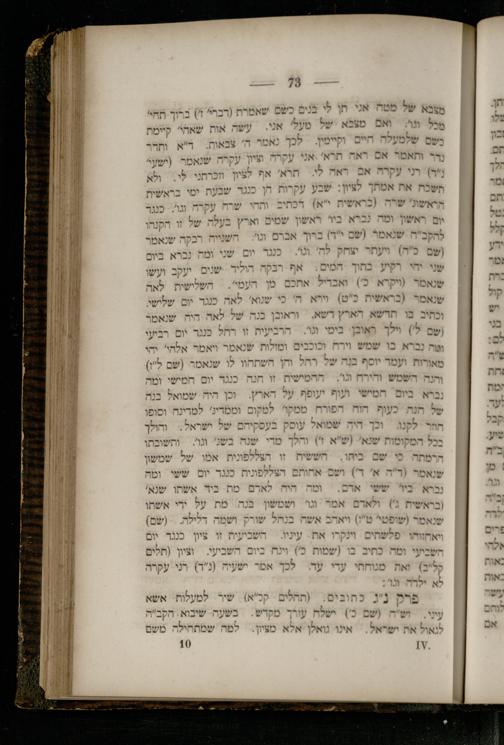 — 73 —
מצבא של מטה אני תן לי בנים כשם שאמרת (דברי׳ ז׳) ברוך תהי׳
מכל וגו׳. ואם מצבא של מעל׳ אני. עשה אות שאהי׳ קיימת
כשם שלמעלה חיים וקיימין. לכך נאמר ה׳ צבאות. ד״א ותדר
נדר ותאמר אם ראה תרא׳ אני עקרה וציון עקרה שנאמר (ישעי׳
נ״ד) רני עקרה אם ראה לי. תרא׳ אף לציון וזכרתני לי. ולא
תשכח את אמתך לציון: שבע עקרות הן כנגד שבעת ימי בראשית
הראשונ׳ שרה (בראשית י״א) דכתיב ותהי שרה עקרה וגו׳. כנגד
יום ראשון ומה נברא ביו׳ ראשון שמים וארץ בעלה של זו הקנהו
להקב״ה שנאמר (שם י״ד) ברוך אברם וגו׳. השנייה רבקה שנאמר
(שם כ״ה) ויעתר יצחק לה׳ וגו׳. כנגד יום שני ומה נברא ביום
שני יהי רקיע בתוך המים. אף רבקה הוליד שנים יעקב ועשו
שנאמר (ויקרא כ׳) ואבדיל אתכם מן העמי׳. השלישית לאה
שנאמר (בראשית כ״ט) וירא ה׳ כי שנוא׳ לאה כנגד יום שלישי.
וכתיב בו תדשא הארץ דשא. וראובן בנה של לאה היה שנאמר
(שם ל׳) וילך ראובן בימי וגו׳. הרביעית זו רחל כנגד יום רביעי
ומה נברא בו שמש וירח וכוכבים ומזלות שנאמר ויאמר אלהי׳ יהי
מאורות ועמד יוסף בנה של רחל והן השתחוו לו שנאמר (שם ל״ז)
והנה השמש והירח וגו׳. החמישית זו חנה כנגד יום חמישי ומה
נברא ביום חמישי ועוף יעופף על הארץ. וכן היה שמואל בנה
של חנה כעוף הזה הפורח ממקו׳ למקום וממדינ׳ למדינה וסופו
חוזר לקנו. וכך היה שמואל עוסק בעסקיהם של ישראל. והולך
בכל המקומות שנא׳ (ש״א ז׳) והלך מדי שנה בשנ׳ וגו׳. ותשובתו
הרמתה כי שם ביתו. הששית זו הצללפונית אמו של שמשון
שנאמר (ד״ה א׳ ד׳) ושם אחותם הצללפונית כנגד יום ששי ומה
נברא ביו׳ ששי אדם. ומה היה לאדם מת ביד אשתו שנא׳
(בראשית ג׳) ולאדם אמר וגו׳ ושמשון בנה מת על ידי אשתו
שנאמר (שופטי׳ ט״ז) ויאהב אשה בנחל שורק ושמה דלילה. (שם)
ויאחזוהו פלשתים וינקרו את עיניו. השביעית זו ציון כנגד יום
השביעי ומה כתיב בו (שמות כ׳) וינח ביום השביעי. וציון (תלים
קל״ב) זאת מנוחתי עדי עד. לכך אמר ישעיה (נ״ד) רני עקרה
לא ילדה וגו׳:
פרק נ״ג כתובים. (תהלים קכ״א) שיר למעלות אשא
עיני. וש״ה (שם כ׳) ישלח עזרך מקדש. בשעה שיבוא הקב״ה
לגאול את ישראל. אינו גואלן אלא מציון. למה שמתחילה משם
IV. 10